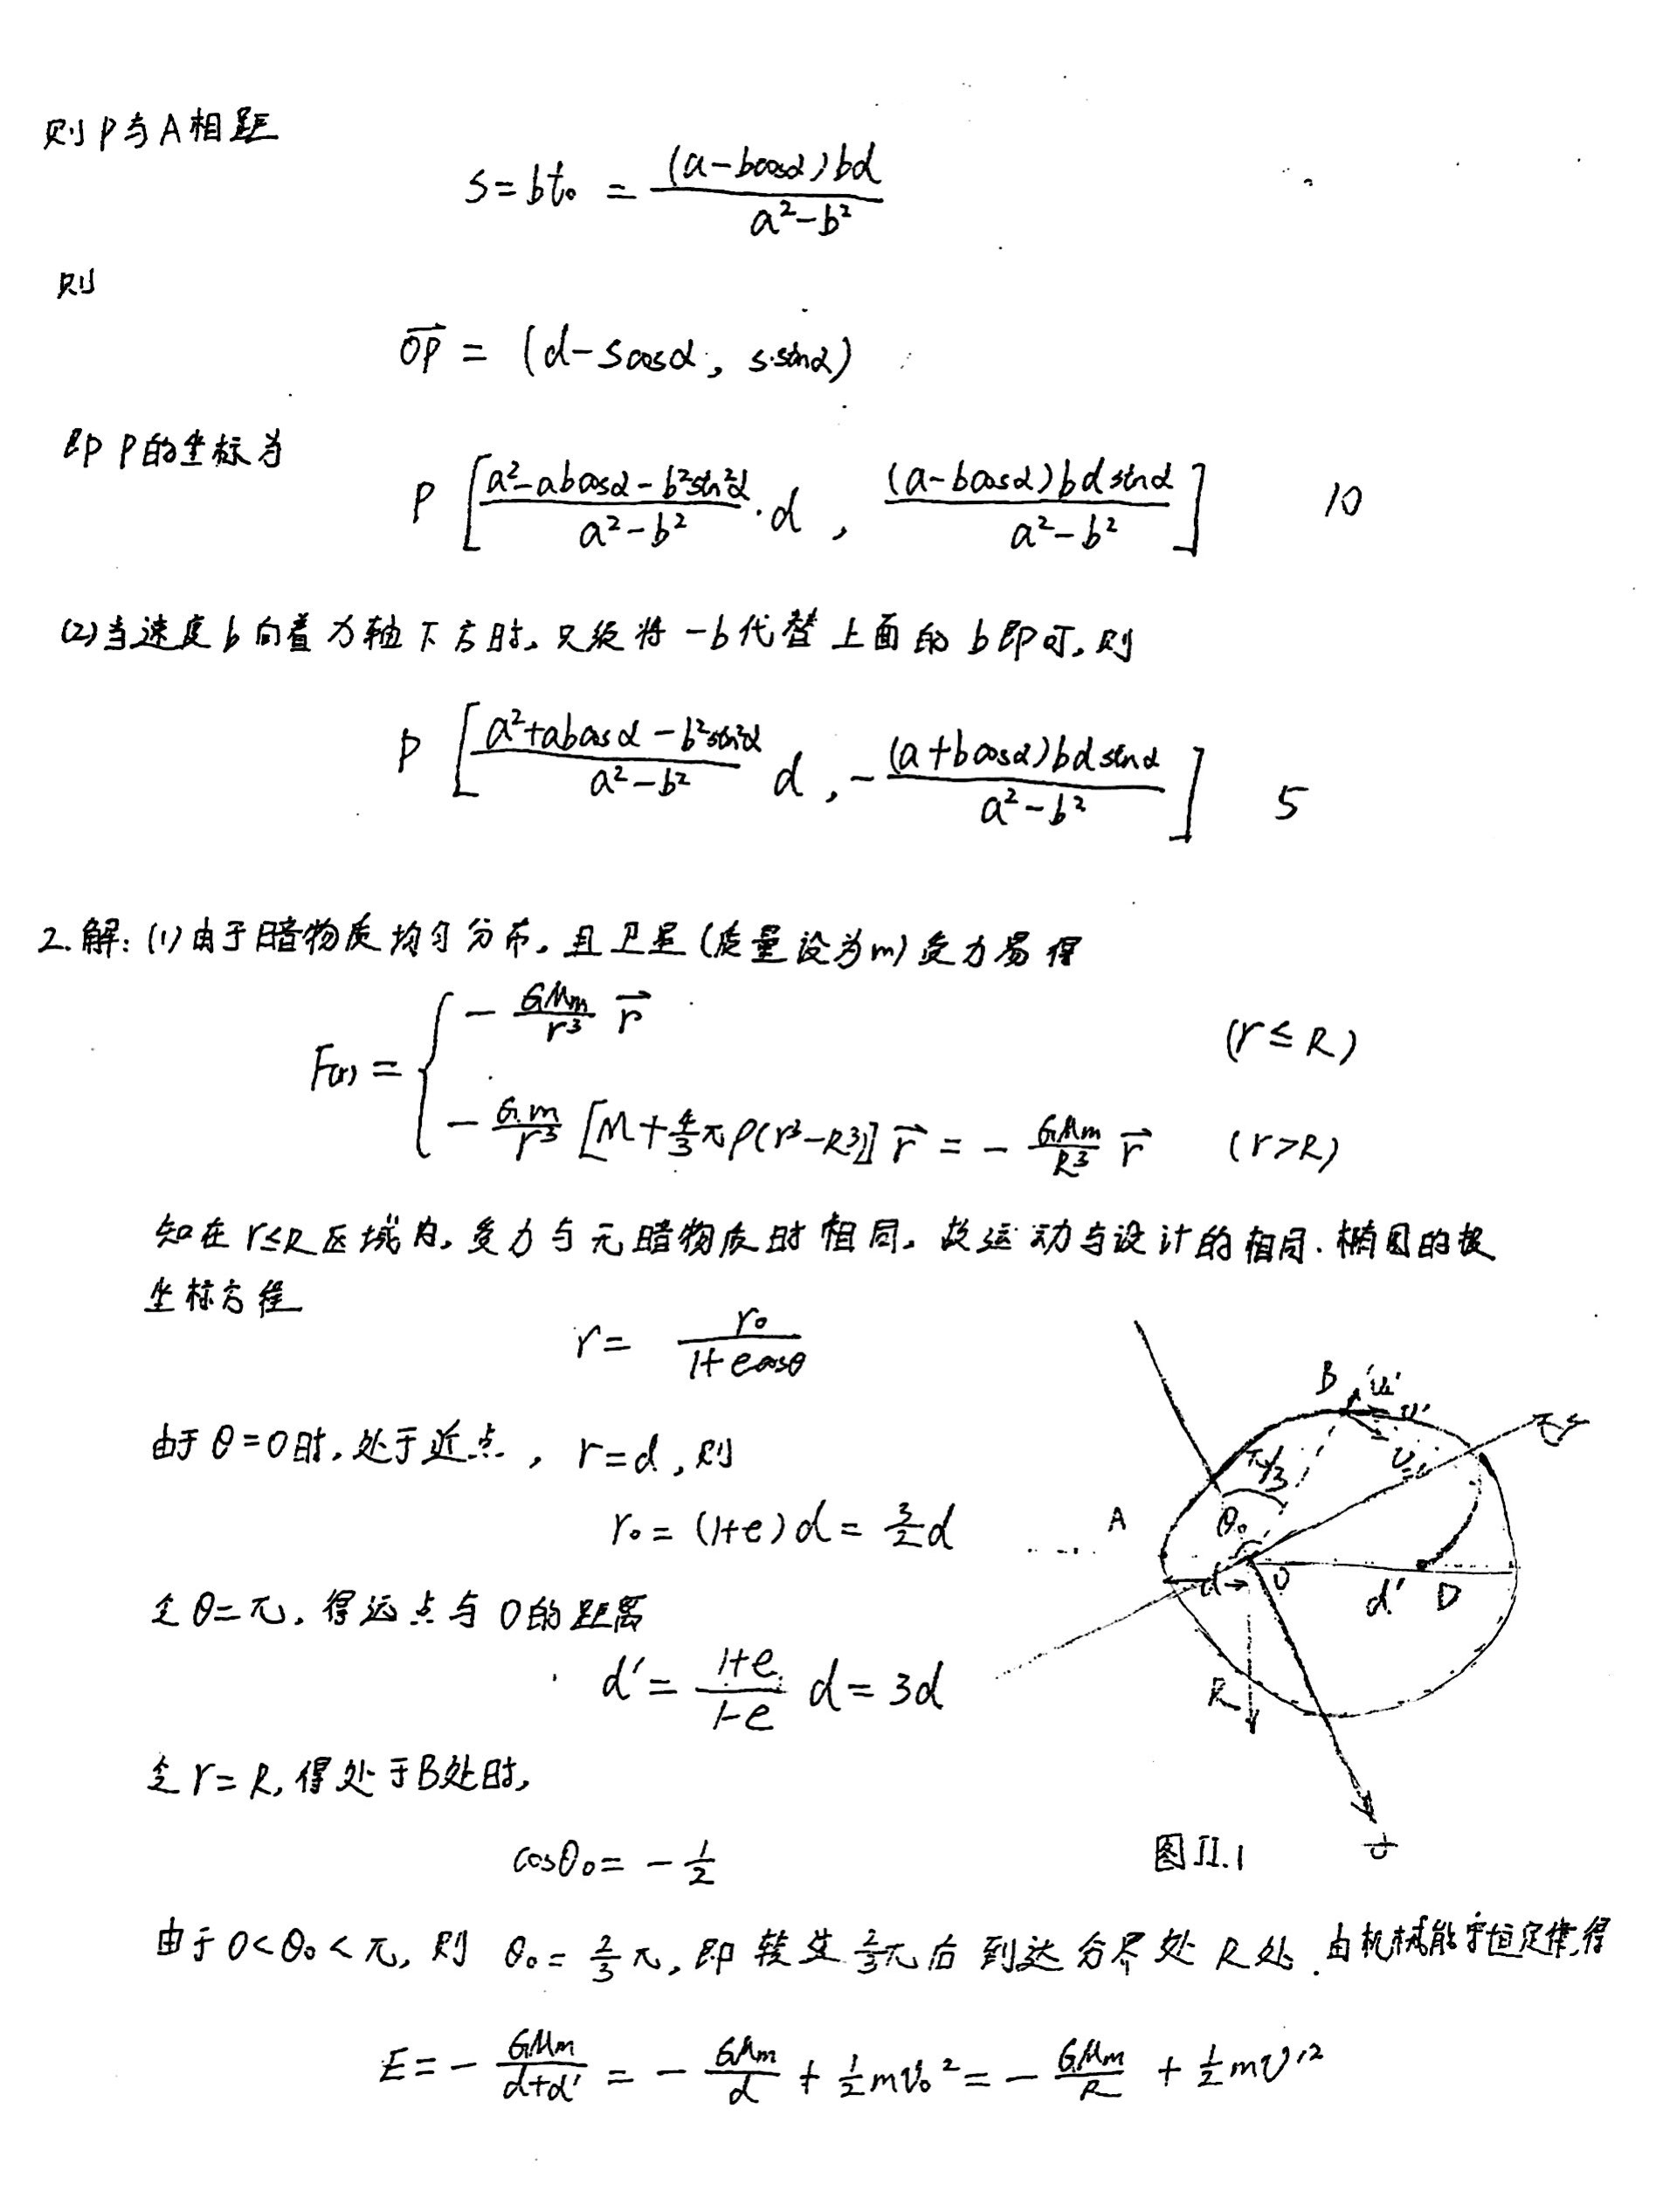 则P与A相距
S=bt₀ = (a-bcosα)bd / (a²-b²)
则
OP⃗ = (d-scosα, s·sinα)
即P的坐标为
P [ (a²-abcosα-b²sin²α)/(a²-b²)·d , (a-bcosα)bdsinα/(a²-b²) ] 10
(2)当速度b向着x轴下方时,只须将-b代替上面的b即可,则
P [ (a²+abcosα-b²sin²α)/(a²-b²) d , -(a+bcosα)bdsinα/(a²-b²) ] 5
2.解:(1)由于暗物质均匀分布,且卫星(质量设为m)受力易得
F(r) = { -GMm/r³ r⃗ (r≤R)
-Gm/r³ [M+4/3πρ(r³-R³)] r⃗ = -GMm/R³ r⃗ (r>R)
知在r≤R区域内,受力与无暗物质时相同,故运动与设计的相同.椭圆的极
坐标方程
r= r₀/(1+ecosθ)
由于θ=0时,处于近点, r=d,则
r₀=(1+e)d=3/2d
令θ=π,得远点与O的距离
d'= (1+e)/(1-e) d=3d
令r=R,得处于B处时,
cosθ₀=-1/2
由于0<θ₀<π,则 θ₀=2/3π,即转过2/3π后到达分界处R处.由机械能守恒定律,得
E=-GMm/(d+d')=-GMm/d+1/2mv₀²=-GMm/R+1/2mv'²
B
π/3
A
θ₀
d
O
d'
D
R
图II.1